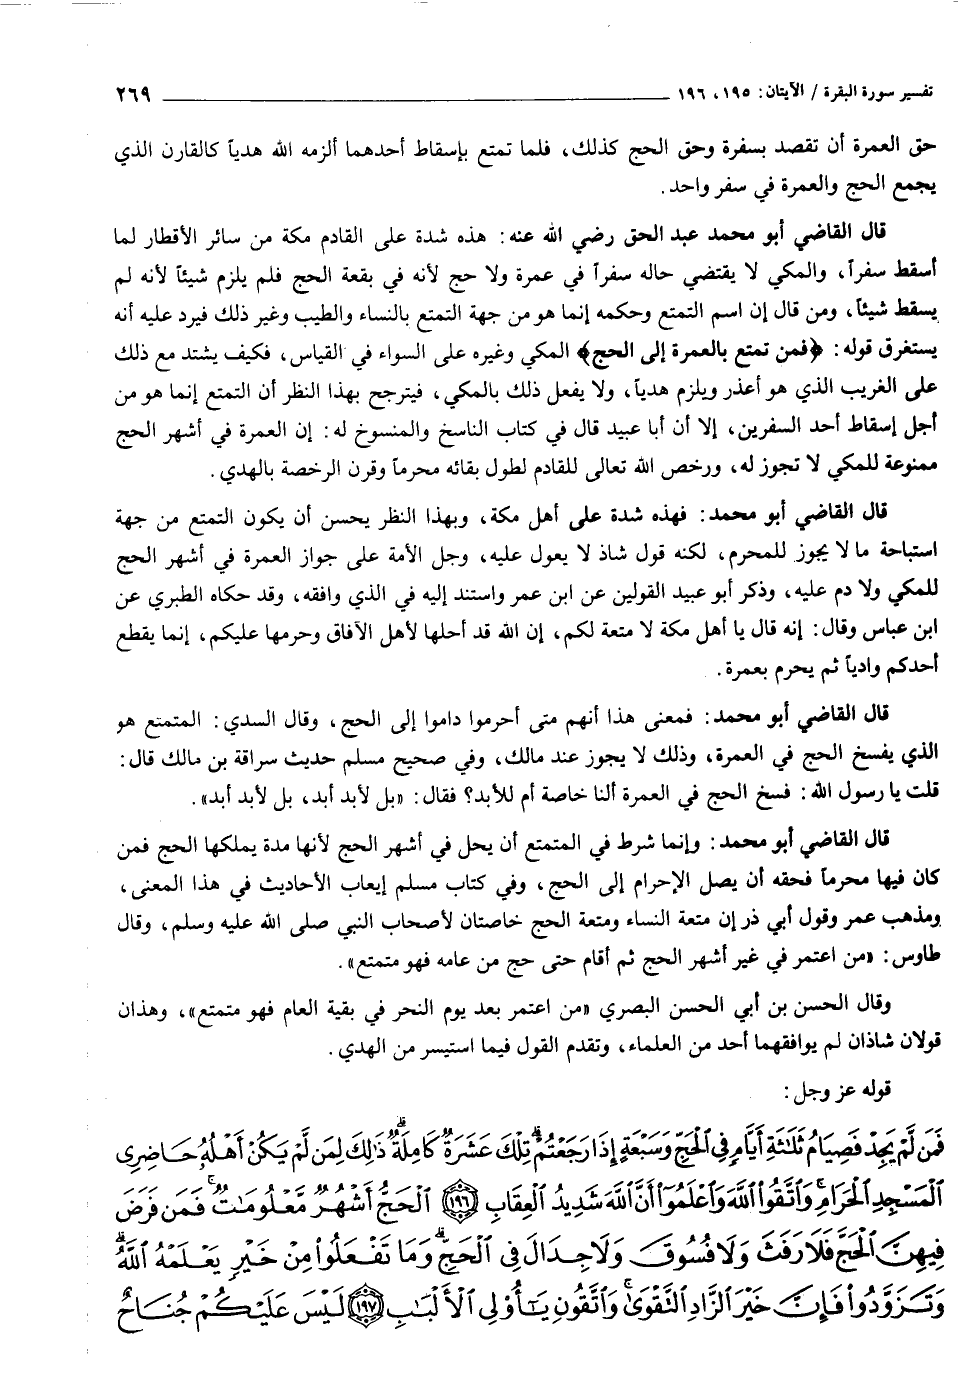 تفسير سورة البقرة / الآيتان: ١٩٥، ١٩٦ ــــــــــــ ٢٦٩
حق العمرة أن تقصد بسفرة وحق الحج كذلك، فلما تمتع بإسقاط أحدهما ألزمه الله هدياً كالقارن الذي
يجمع الحج والعمرة في سفر واحد.
قال القاضي أبو محمد عبد الحق رضي الله عنه: هذه شدة على القادم مكة من سائر الأقطار لما
أسقط سفراً، والمكي لا يقتضي حاله سفراً في عمرة ولا حج لأنه في بقعة الحج فلم يلزم شيئاً لأنه لم
يسقط شيئاً، ومن قال إن اسم التمتع وحكمه إنما هو من جهة التمتع بالنساء والطيب وغير ذلك فيرد عليه أنه
يستغرق قوله: ﴿فمن تمتع بالعمرة إلى الحج﴾ المكي وغيره على السواء في القياس، فكيف يشتد مع ذلك
على الغريب الذي هو أعذر ويلزم هدياً، ولا يفعل ذلك بالمكي، فيترجح بهذا النظر أن التمتع إنما هو من
أجل إسقاط أحد السفرين، إلا أن أبا عبيد قال في كتاب الناسخ والمنسوخ له: إن العمرة في أشهر الحج
ممنوعة للمكي لا تجوز له، ورخص الله تعالى للقادم لطول بقائه محرماً وقرن الرخصة بالهدي.
قال القاضي أبو محمد: فهذه شدة على أهل مكة، وبهذا النظر يحسن أن يكون التمتع من جهة
استباحة ما لا يجوز للمحرم، لكنه قول شاذ لا يعول عليه، وجل الأمة على جواز العمرة في أشهر الحج
للمكي ولا دم عليه، وذكر أبو عبيد القولين عن ابن عمر واستند إليه في الذي وافقه، وقد حكاه الطبري عن
ابن عباس وقال: إنه قال يا أهل مكة لا متعة لكم، إن الله قد أحلها لأهل الآفاق وحرمها عليكم، إنما يقطع
أحدكم وادياً ثم يحرم بعمرة.
قال القاضي أبو محمد: فمعنى هذا أنهم متى أحرموا داموا إلى الحج، وقال السدي: المتمتع هو
الذي يفسخ الحج في العمرة، وذلك لا يجوز عند مالك، وفي صحيح مسلم حديث سراقة بن مالك قال:
قلت يا رسول الله: فسخ الحج في العمرة ألنا خاصة أم للأبد؟ فقال: «بل لأبد أبد، بل لأبد أبد».
قال القاضي أبو محمد: وإنما شرط في المتمتع أن يحل في أشهر الحج لأنها مدة يملكها الحج فمن
كان فيها محرماً فحقه أن يصل الإحرام إلى الحج، وفي كتاب مسلم إيعاب الأحاديث في هذا المعنى،
ومذهب عمر وقول أبي ذر إن متعة النساء ومتعة الحج خاصتان لأصحاب النبي صلى الله عليه وسلم، وقال
طاوس: «من اعتمر في غير أشهر الحج ثم أقام حتى حج من عامه فهو متمتع».
وقال الحسن بن أبي الحسن البصري «من اعتمر بعد يوم النحر في بقية العام فهو متمتع»، وهذان
قولان شاذان لم يوافقهما أحد من العلماء، وتقدم القول فيما استيسر من الهدي.
قوله عز وجل:
فَمَن لَّمْ يَجِدْ فَصِيَامُ ثَلَاثَةِ أَيَّامٍ فِي الْحَجِّ وَسَبْعَةٍ إِذَا رَجَعْتُمْ ۗ تِلْكَ عَشَرَةٌ كَامِلَةٌ ۗ ذَٰلِكَ لِمَن لَّمْ يَكُنْ أَهْلُهُ حَاضِرِي
الْمَسْجِدِ الْحَرَامِ ۚ وَاتَّقُوا اللَّهَ وَاعْلَمُوا أَنَّ اللَّهَ شَدِيدُ الْعِقَابِ ﴿١٩٦﴾ الْحَجُّ أَشْهُرٌ مَّعْلُومَاتٌ ۚ فَمَن فَرَضَ
فِيهِنَّ الْحَجَّ فَلَا رَفَثَ وَلَا فُسُوقَ وَلَا جِدَالَ فِي الْحَجِّ ۗ وَمَا تَفْعَلُوا مِنْ خَيْرٍ يَعْلَمْهُ اللَّهُ ۗ
وَتَزَوَّدُوا فَإِنَّ خَيْرَ الزَّادِ التَّقْوَىٰ ۚ وَاتَّقُونِ يَا أُولِي الْأَلْبَابِ ﴿١٩٧﴾ لَيْسَ عَلَيْكُمْ جُنَاحٌ